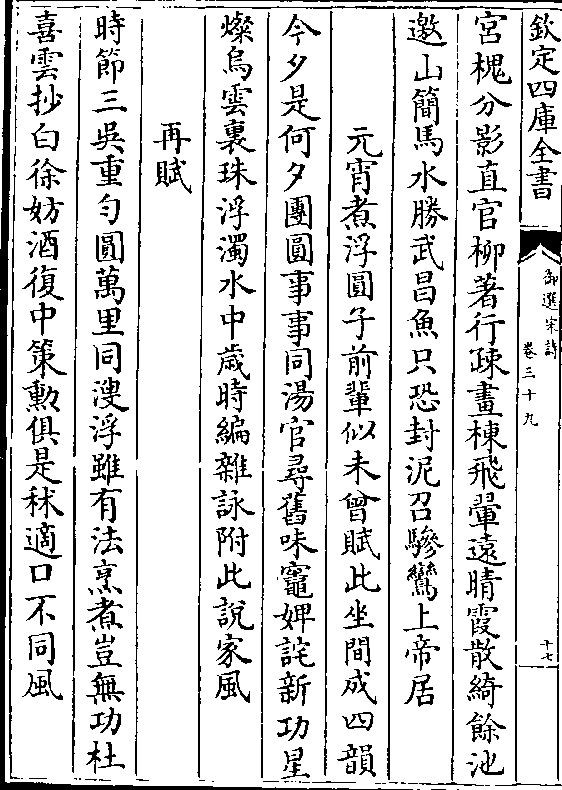 欽定四庫全書
御選宋詩
卷三十九
十七
宮槐分影直官柳著行疎畫棟飛暈遠晴霞散綺餘池
邀山簡馬水勝武昌魚只恐封泥召驂鸞上帝居
元宵煮浮圓子前輩似未曾賦此坐間成四韻
今夕是何夕團圓事事同湯官尋舊味竈婢詫新功星
燦烏雲裏珠浮濁水中歲時編雜詠附此說家風
再賦
時節三吳重勻圓萬里同溲浮雖有法烹煮豈無功杜
喜雲抄白徐妨酒復中策勳俱是秫適口不同風